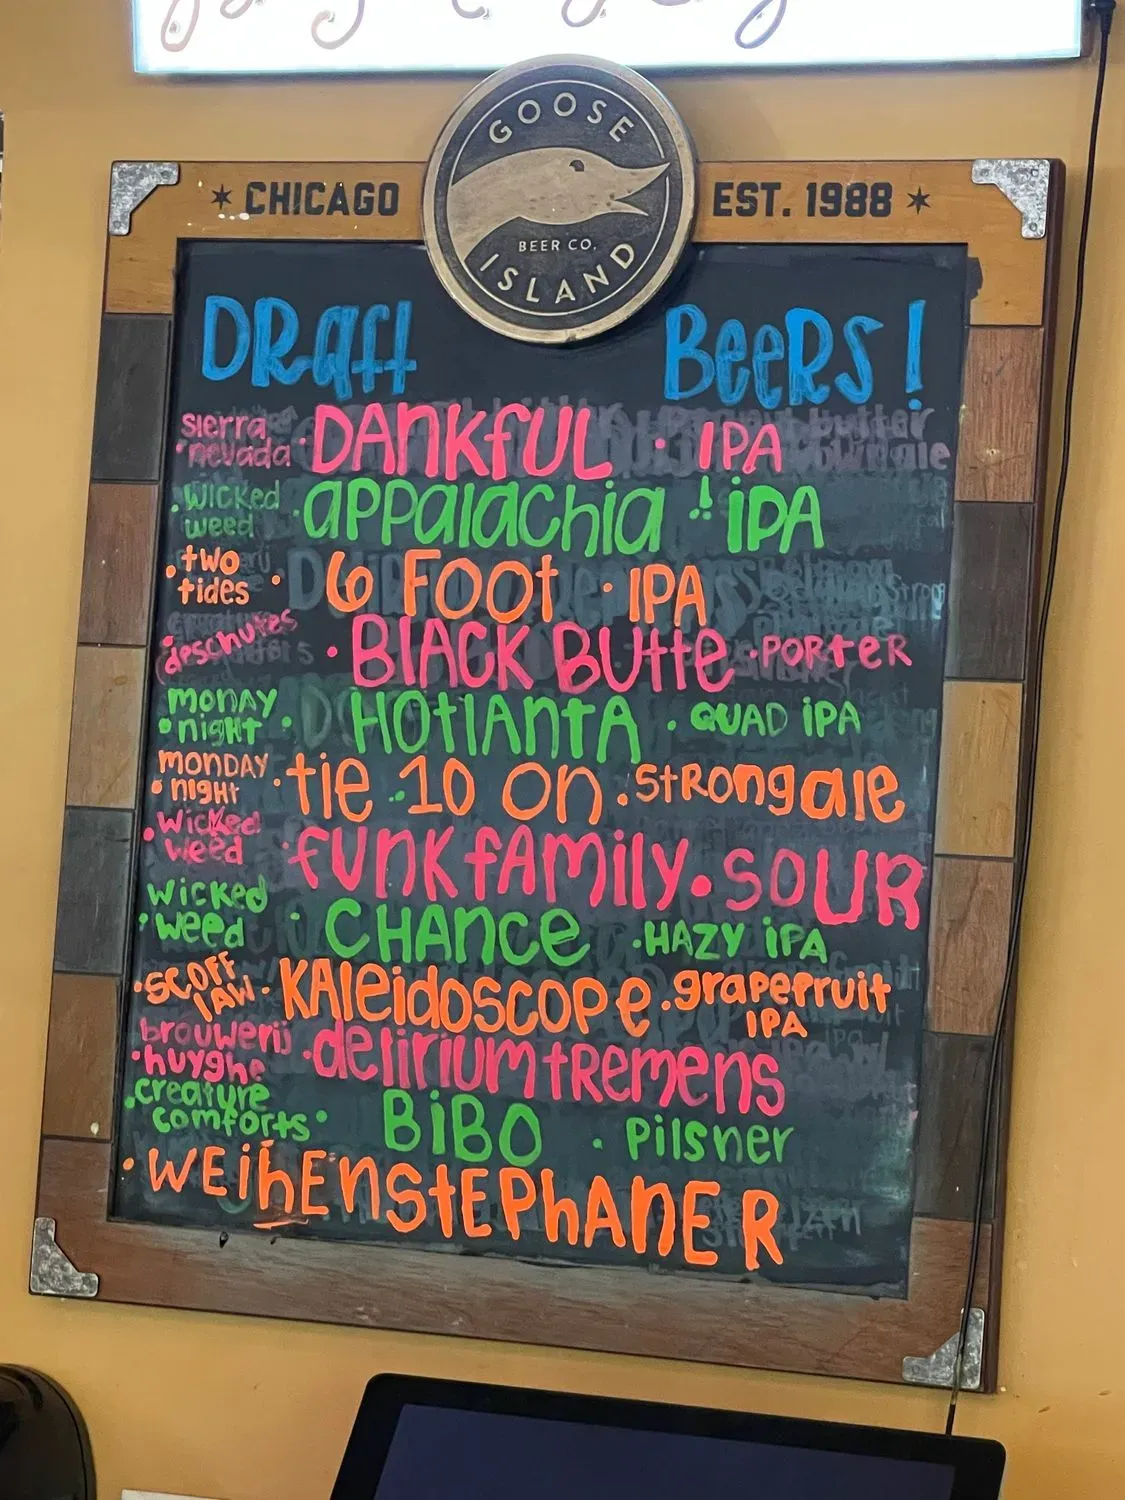 GOOSE
CHICAGO
EST. 1988
BEER CO.
ISLAND
DRaft BeeRS!
sierra nevada · DANKfUL · IPA
· wicked weed · appalachia · IPA
· two tides · 6 FOOt · IPA
· deschutes · BlACK BUtte · PORteR
monday · night · HOtlAntA · QUAD iPA
monday · night · tie 10 on · StRongale
· wicked weed · fUNK fAMily · SOUR
wicked · weed · CHANCe · HAZY iPA
· SCOFF lAW · KAleidoscope · grapefruit
IPA
brouwerij · huyghe · delirium tRemens
· creature comforts · BiBO · Pilsner
· WEihENStEPhANER